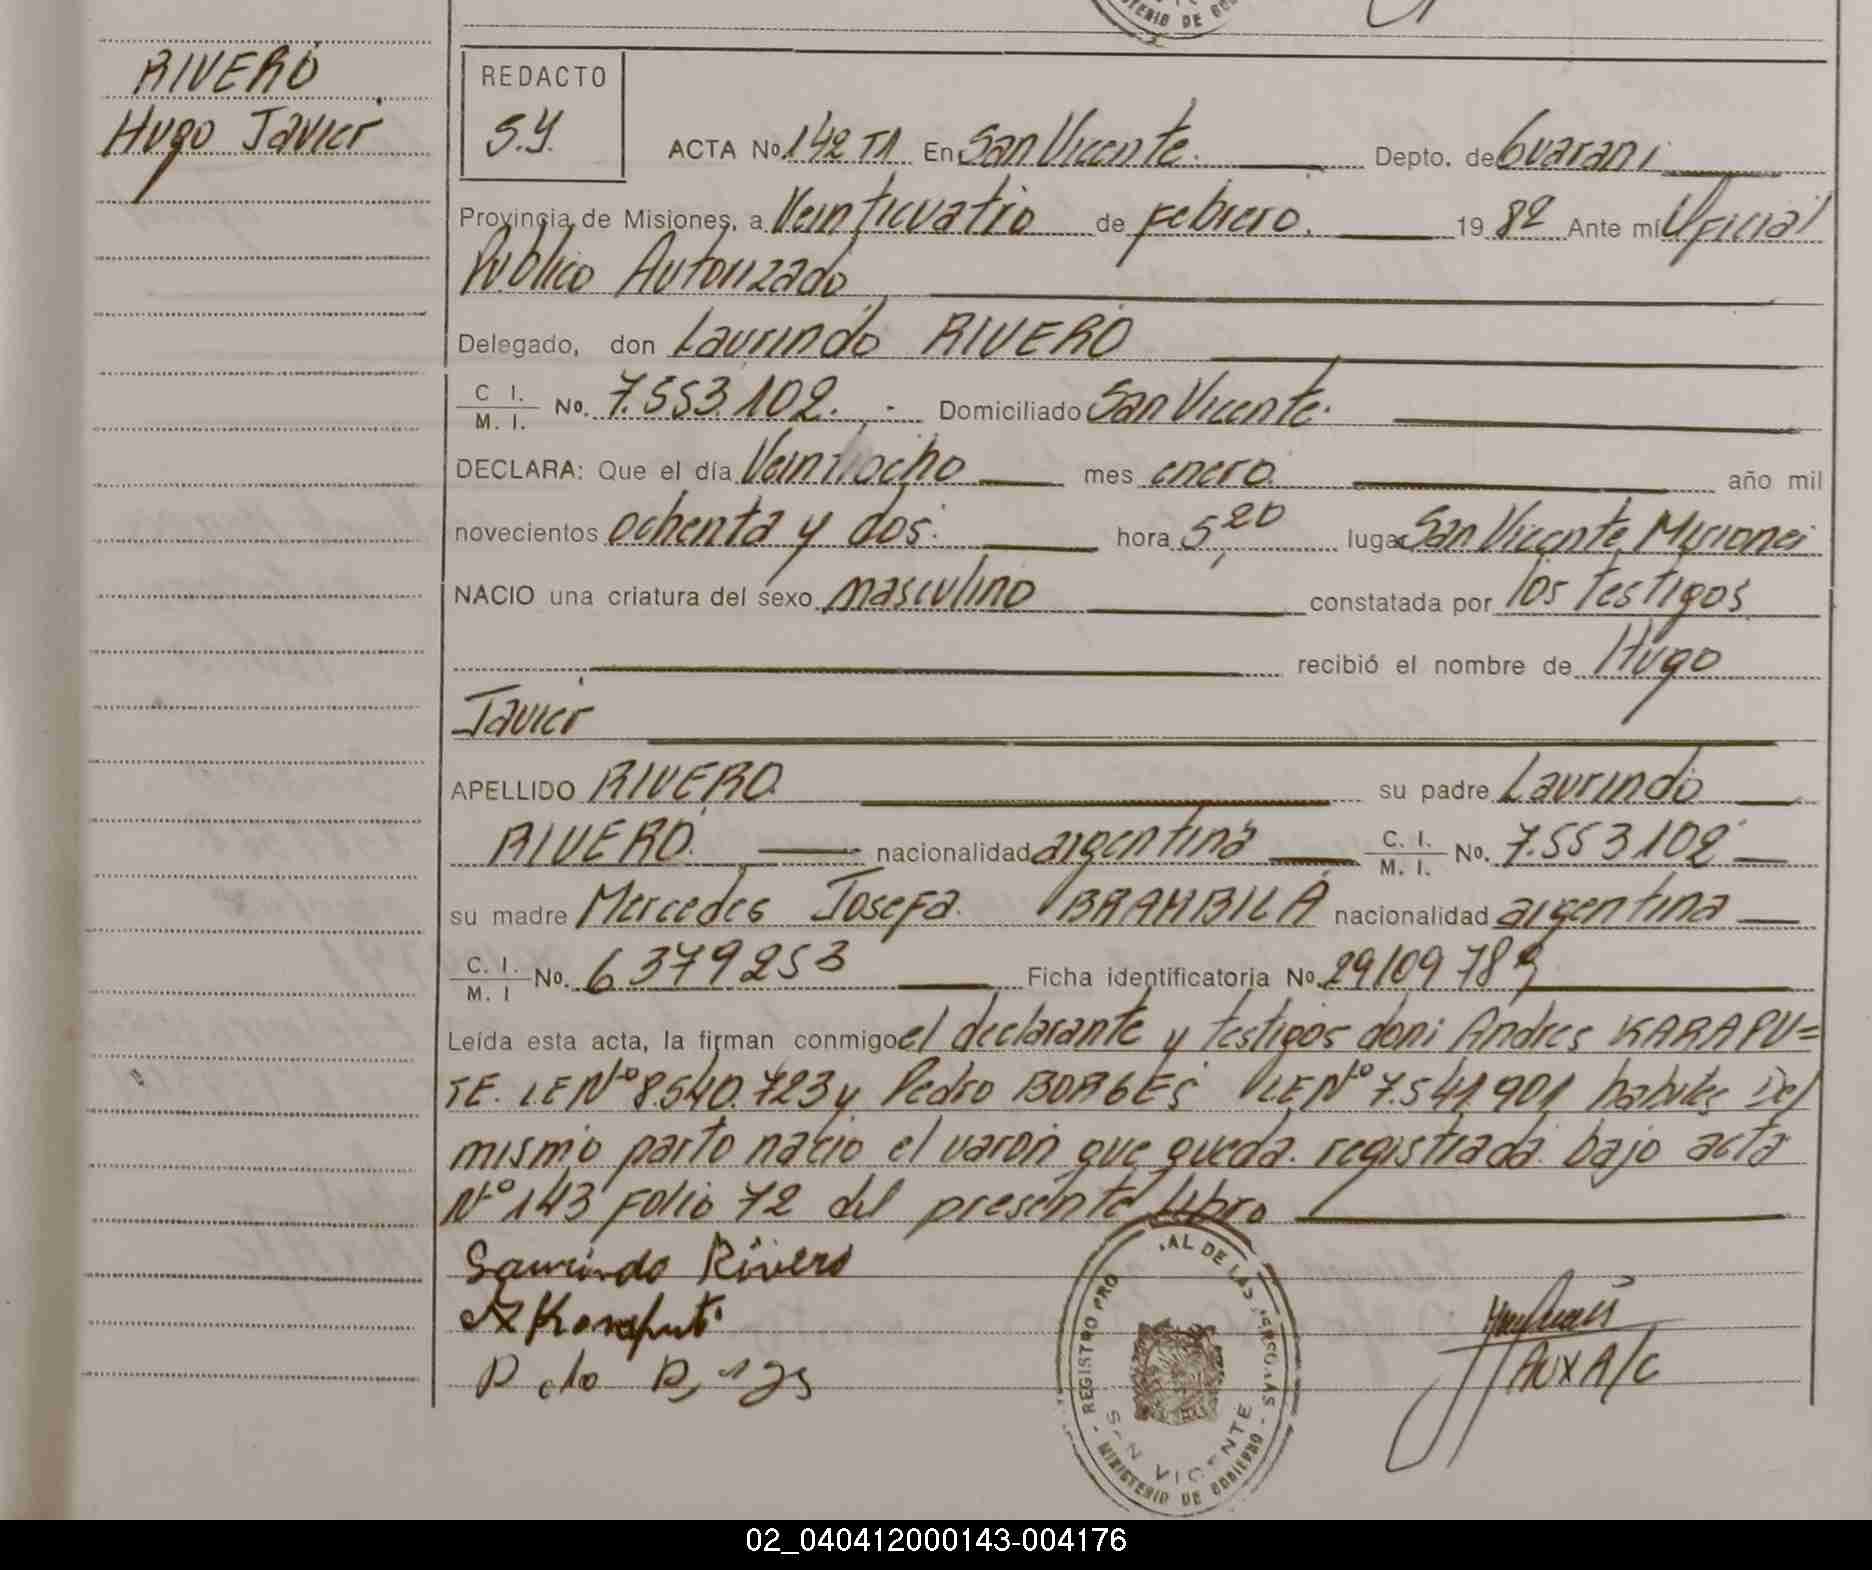 RIVERO
Hugo Javier
REDACTO
S.Y.
ACTA No. 142 T1 En San Vicente. Depto. de Guarani
Provincia de Misiones, a Veinticuatro de Febrero. 19 82 Ante mí Oficial
Publico Autorizado
Delegado, don Laurindo RIVERO
C. I. / M. I. No. 7.553.102. Domiciliado San Vicente.
DECLARA: Que el día Veintiocho mes enero. año mil
novecientos ochenta y dos. hora 5,20 lugar San Vicente, Misiones
NACIO una criatura del sexo masculino constatada por los testigos
recibió el nombre de Hugo
Javier
APELLIDO RIVERO. su padre Laurindo
RIVERO. nacionalidad argentina C. I. / M. I. No. 7.553102
su madre Mercedes Josefa BRAMBILA nacionalidad argentina
C. I. / M. I No. 6379253 Ficha identificatoria No. 29109 789
Leída esta acta, la firman conmigo el declarante y testigos don: Andres KARAPU=
TE. LE N° 8.540.723 y Pedro BORGES LE N° 7.541.901 habiles Del
mismo parto nacio el varon que queda registrada bajo acta
N° 143 Folio 72 del presente libro
Laurindo Rivero
REGISTRO PRO AL DE LAS PERSONAS
SAN VICENTE
MINISTERIO DE GOBIERNO
AUX A/C
02_040412000143-004176